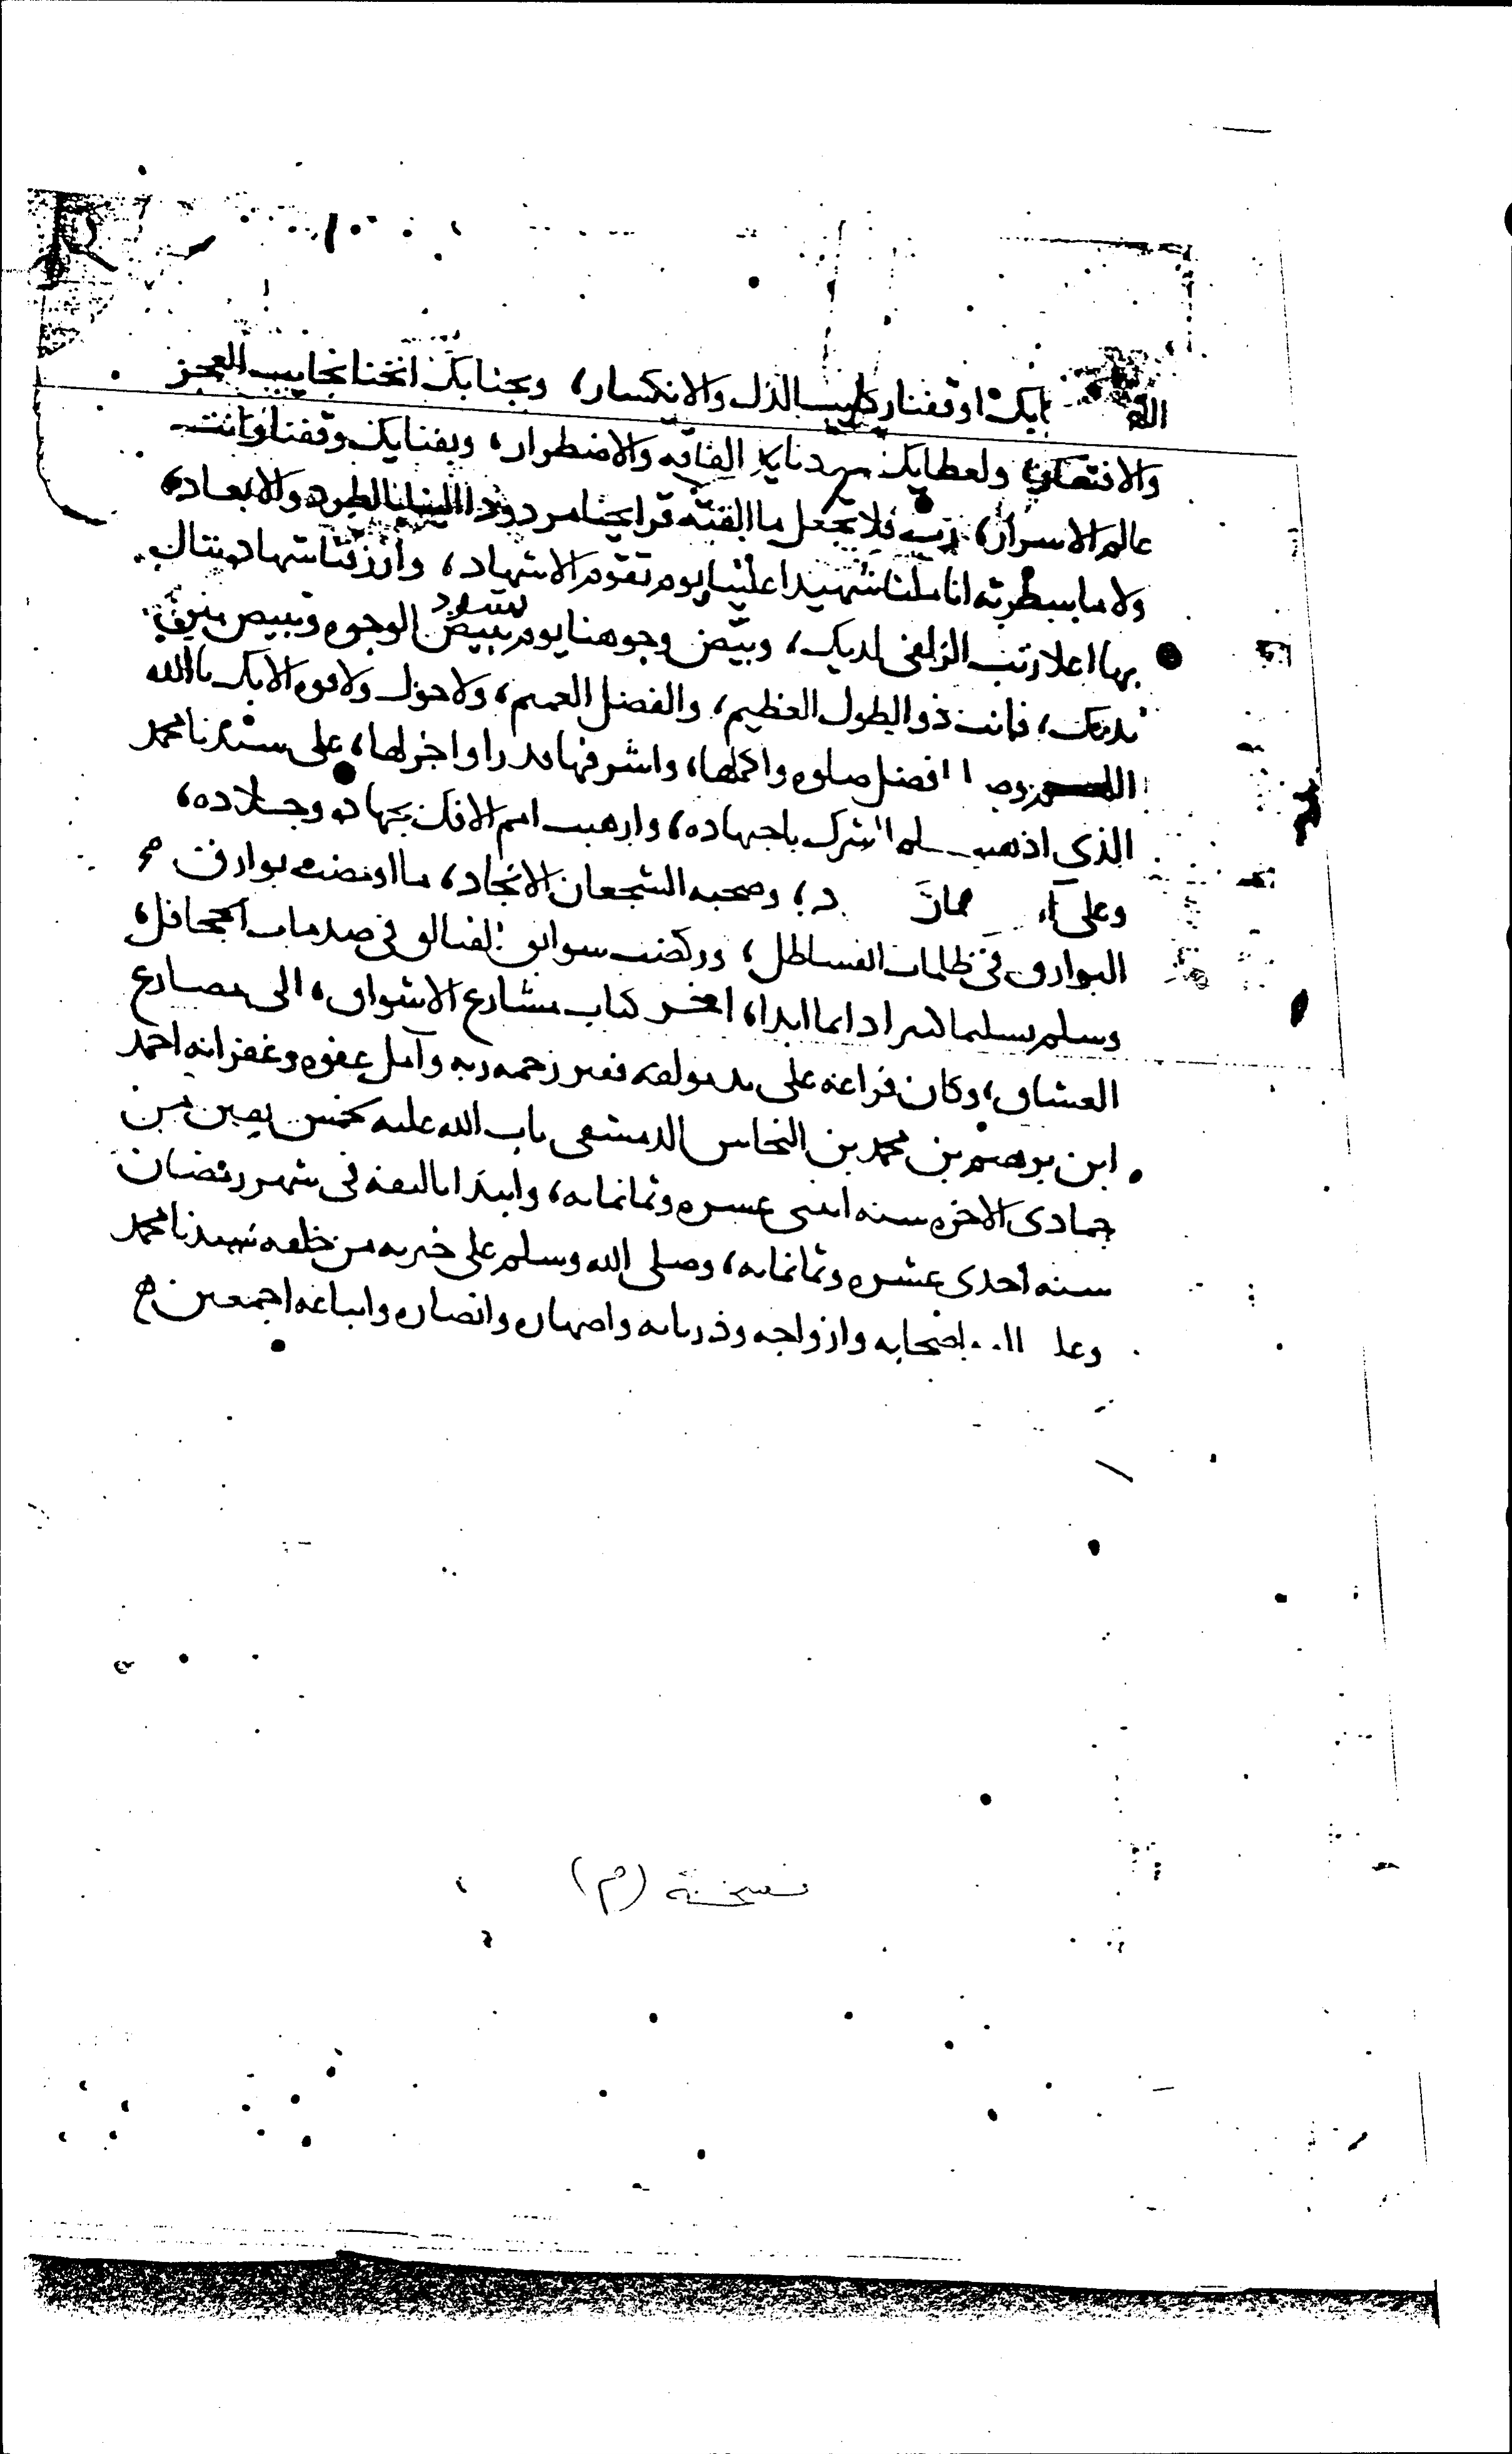 بابك اوقفنا ركايب الذل والانكسار، وبجنابك انخنا نجايب العجز
والافتقار، ولعطايك مددنا يد الفاقه والاضطرار، وبفنايك وقفنا وانت
عالم الاسرار، رب فلا تجعل ما القته قرايحنا مردودا الينا بالطرد والابعاد،
ولا ما سطرته اناملنا شهيدا علينا يوم تقوم الاشهاد، وارزقنا شهادة ننال
بها اعلا رتب الزلفى لديك، وبيّض وجوهنا يوم تبيض الوجوه وتسود
يديك، فانت ذو الطول العظيم، والفضل العميم، ولا حول ولا قوه الا بك يا الله
افضل صلوه واكملها، واشرفها قدرا واجزلها، على سيدنا محمد
الذي اذهب الشرك باجتهاده، وارهب امم الافك بجهاده وجلاده،
وعلى د، وصحبه الشجعان الانجاد، ما اومضت بوارق
البوارق في ظلمات القساطل، وركضت سوابق الفيالق في صدمات الجحافل،
وسلم تسليما كثيرا دايما ابدا، اخر كتاب مشارع الاشواق، الى مصارع
العشاق، وكان فراغه على يد مولفه فقير رحمه ربه وآمل عفوه وغفرانه احمد
ابن ابرهيم بن محمد بن النحاس الدمشقي تاب الله عليه لخمس بقين من
جمادى الاخره سنه اثنى عشره وثمانمايه، وابتدا تاليفه في شهر رمضان
سنه احدى عشره وثمانمايه، وصلى الله وسلم على خيرته من خلقه سيدنا محمد
وعلى اصحابه وازواجه وذرياته واصهاره وانصاره واتباعه اجمعين
نسخة (م)